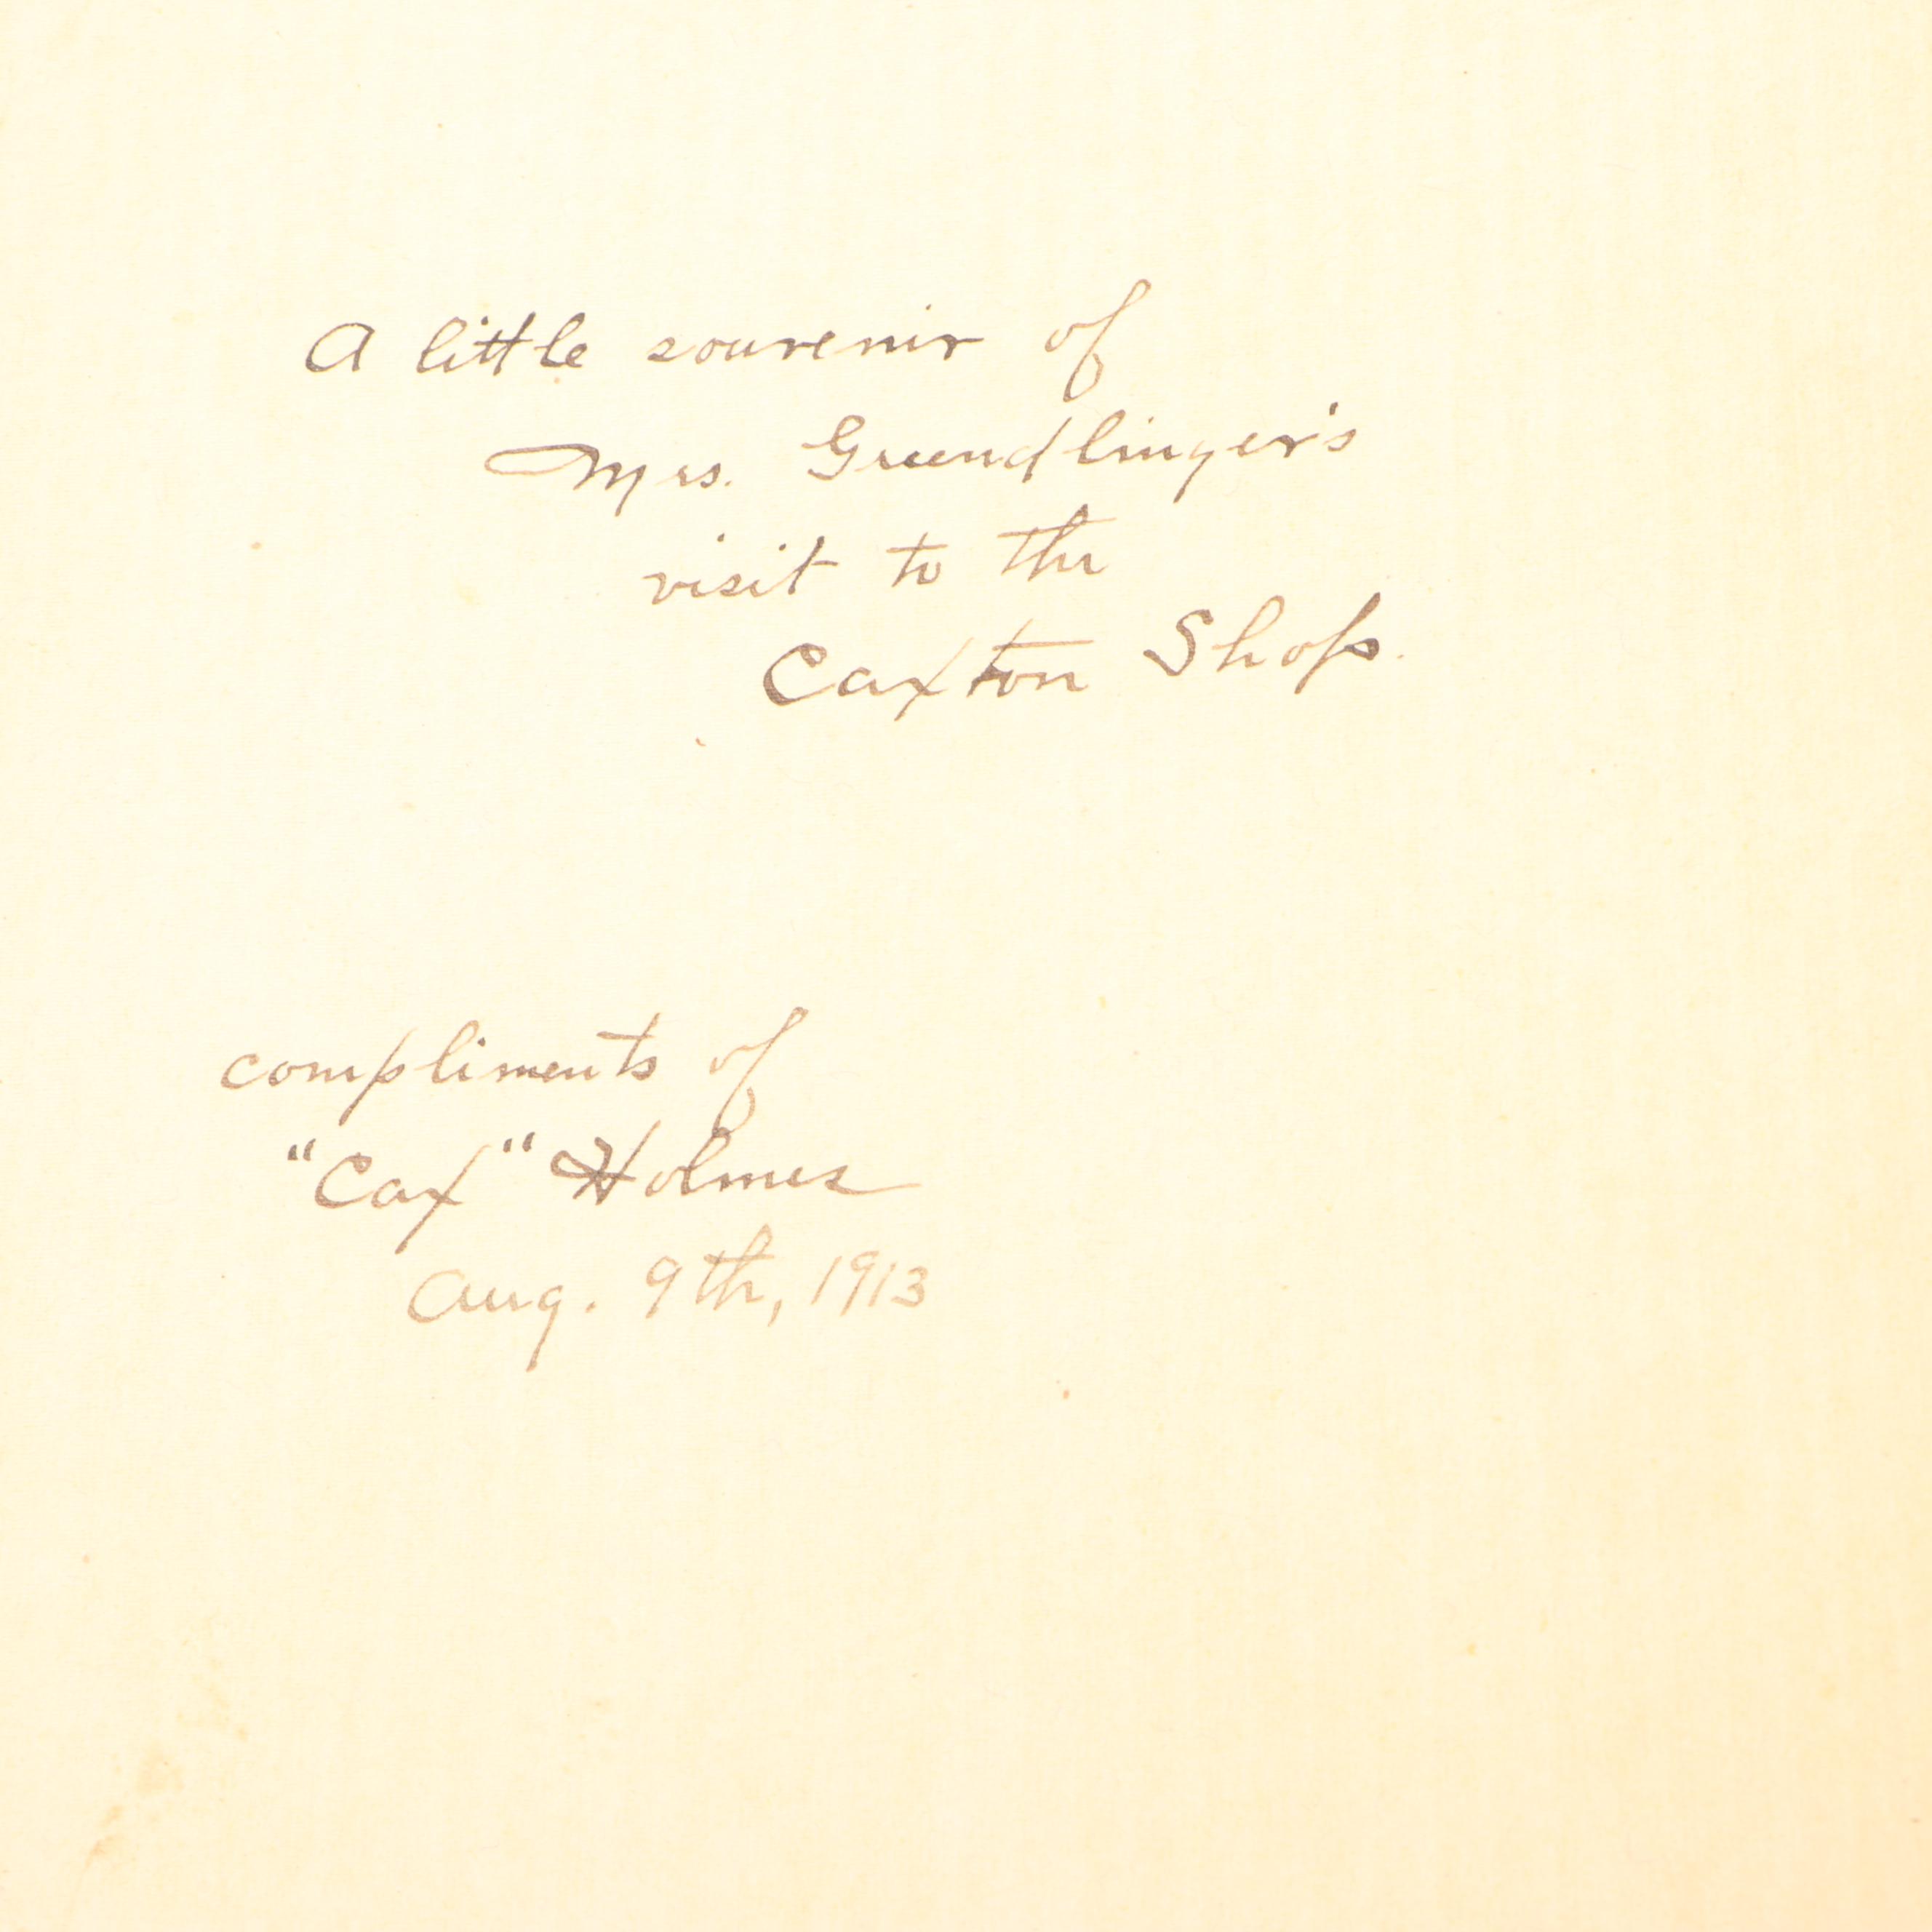 A little souvenir of
Mrs. Gruendlinger's
visit to the
Caxton Shop.
compliments of
"Cax" Holmes
Aug. 9th, 1913